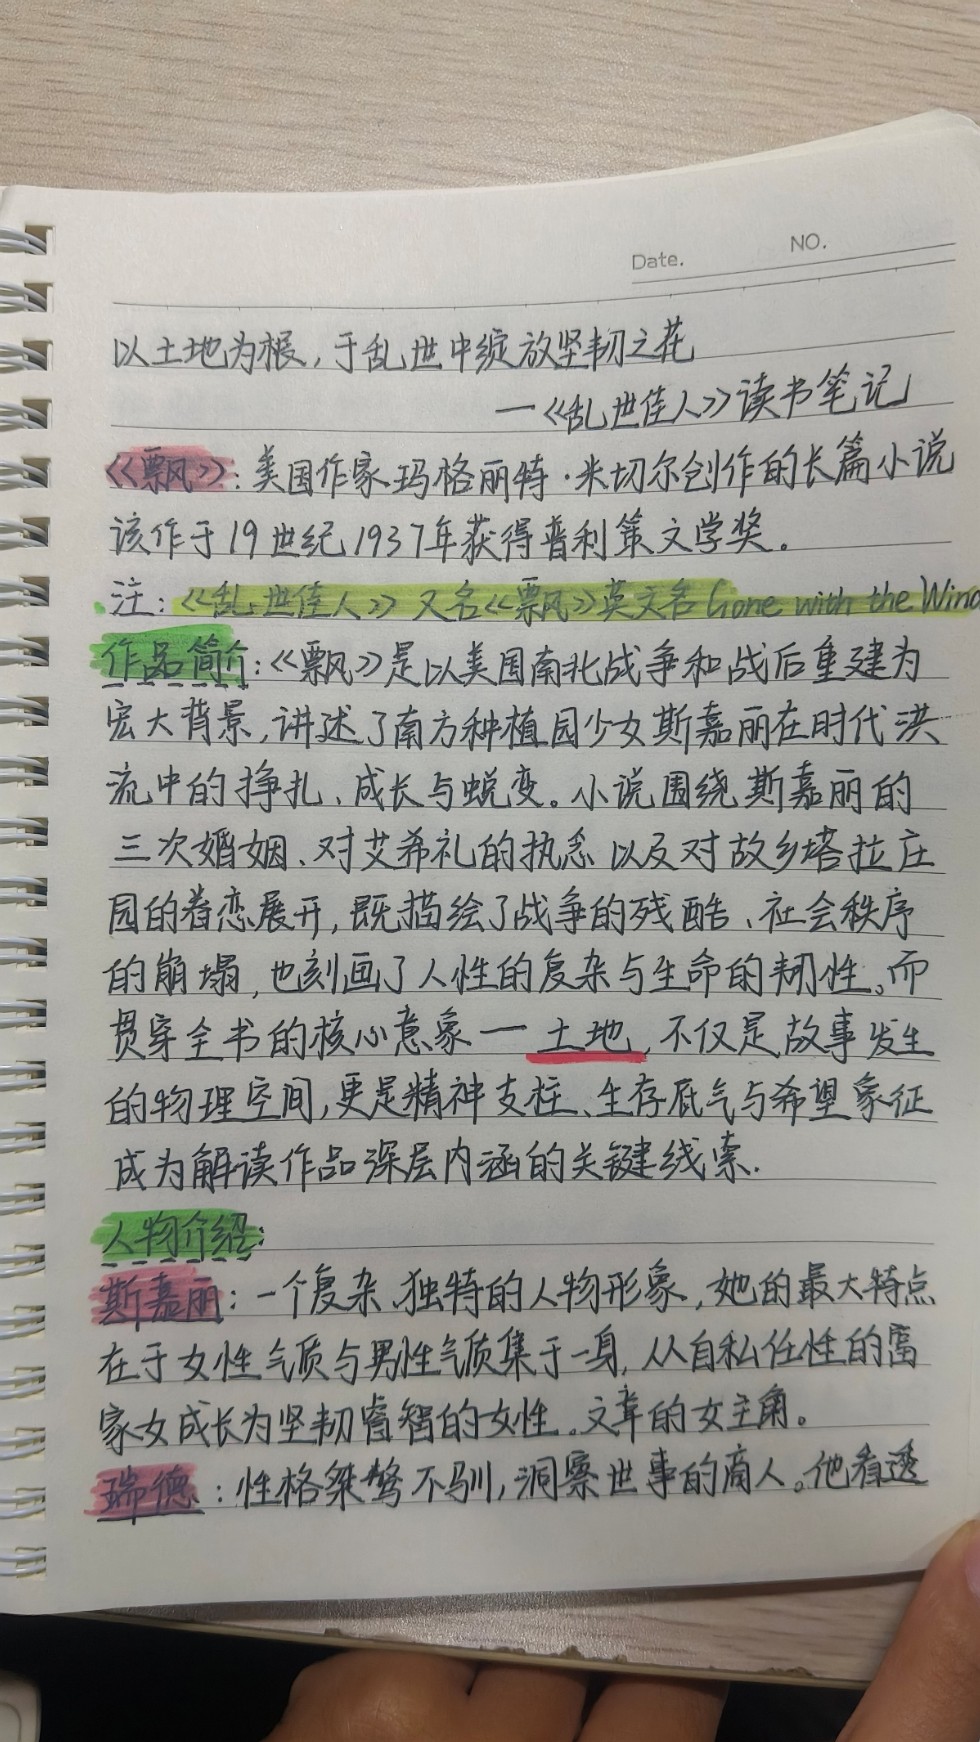 Date.
NO.
以土地为根，于乱世中绽放坚韧之花
—《乱世佳人》读书笔记
《飘》：美国作家玛格丽特·米切尔创作的长篇小说
该作于19世纪1937年获得普利策文学奖。
注：《乱世佳人》又名《飘》英文名 Gone with the Wind
作品简介：《飘》是以美国南北战争和战后重建为
宏大背景，讲述了南方种植园少女斯嘉丽在时代洪
流中的挣扎、成长与蜕变。小说围绕斯嘉丽的
三次婚姻、对艾希礼的执念以及对故乡塔拉庄
园的眷恋展开，既描绘了战争的残酷、社会秩序
的崩塌，也刻画了人性的复杂与生命的韧性。而
贯穿全书的核心意象—土地，不仅是故事发生
的物理空间，更是精神支柱、生存底气与希望象征
成为解读作品深层内涵的关键线索.
人物介绍：
斯嘉丽：一个复杂、独特的人物形象，她的最大特点
在于女性气质与男性气质集于一身，从自私任性的富
家女成长为坚韧睿智的女性。文章的女主角。
瑞德：性格桀骜不驯，洞察世事的商人。他看透